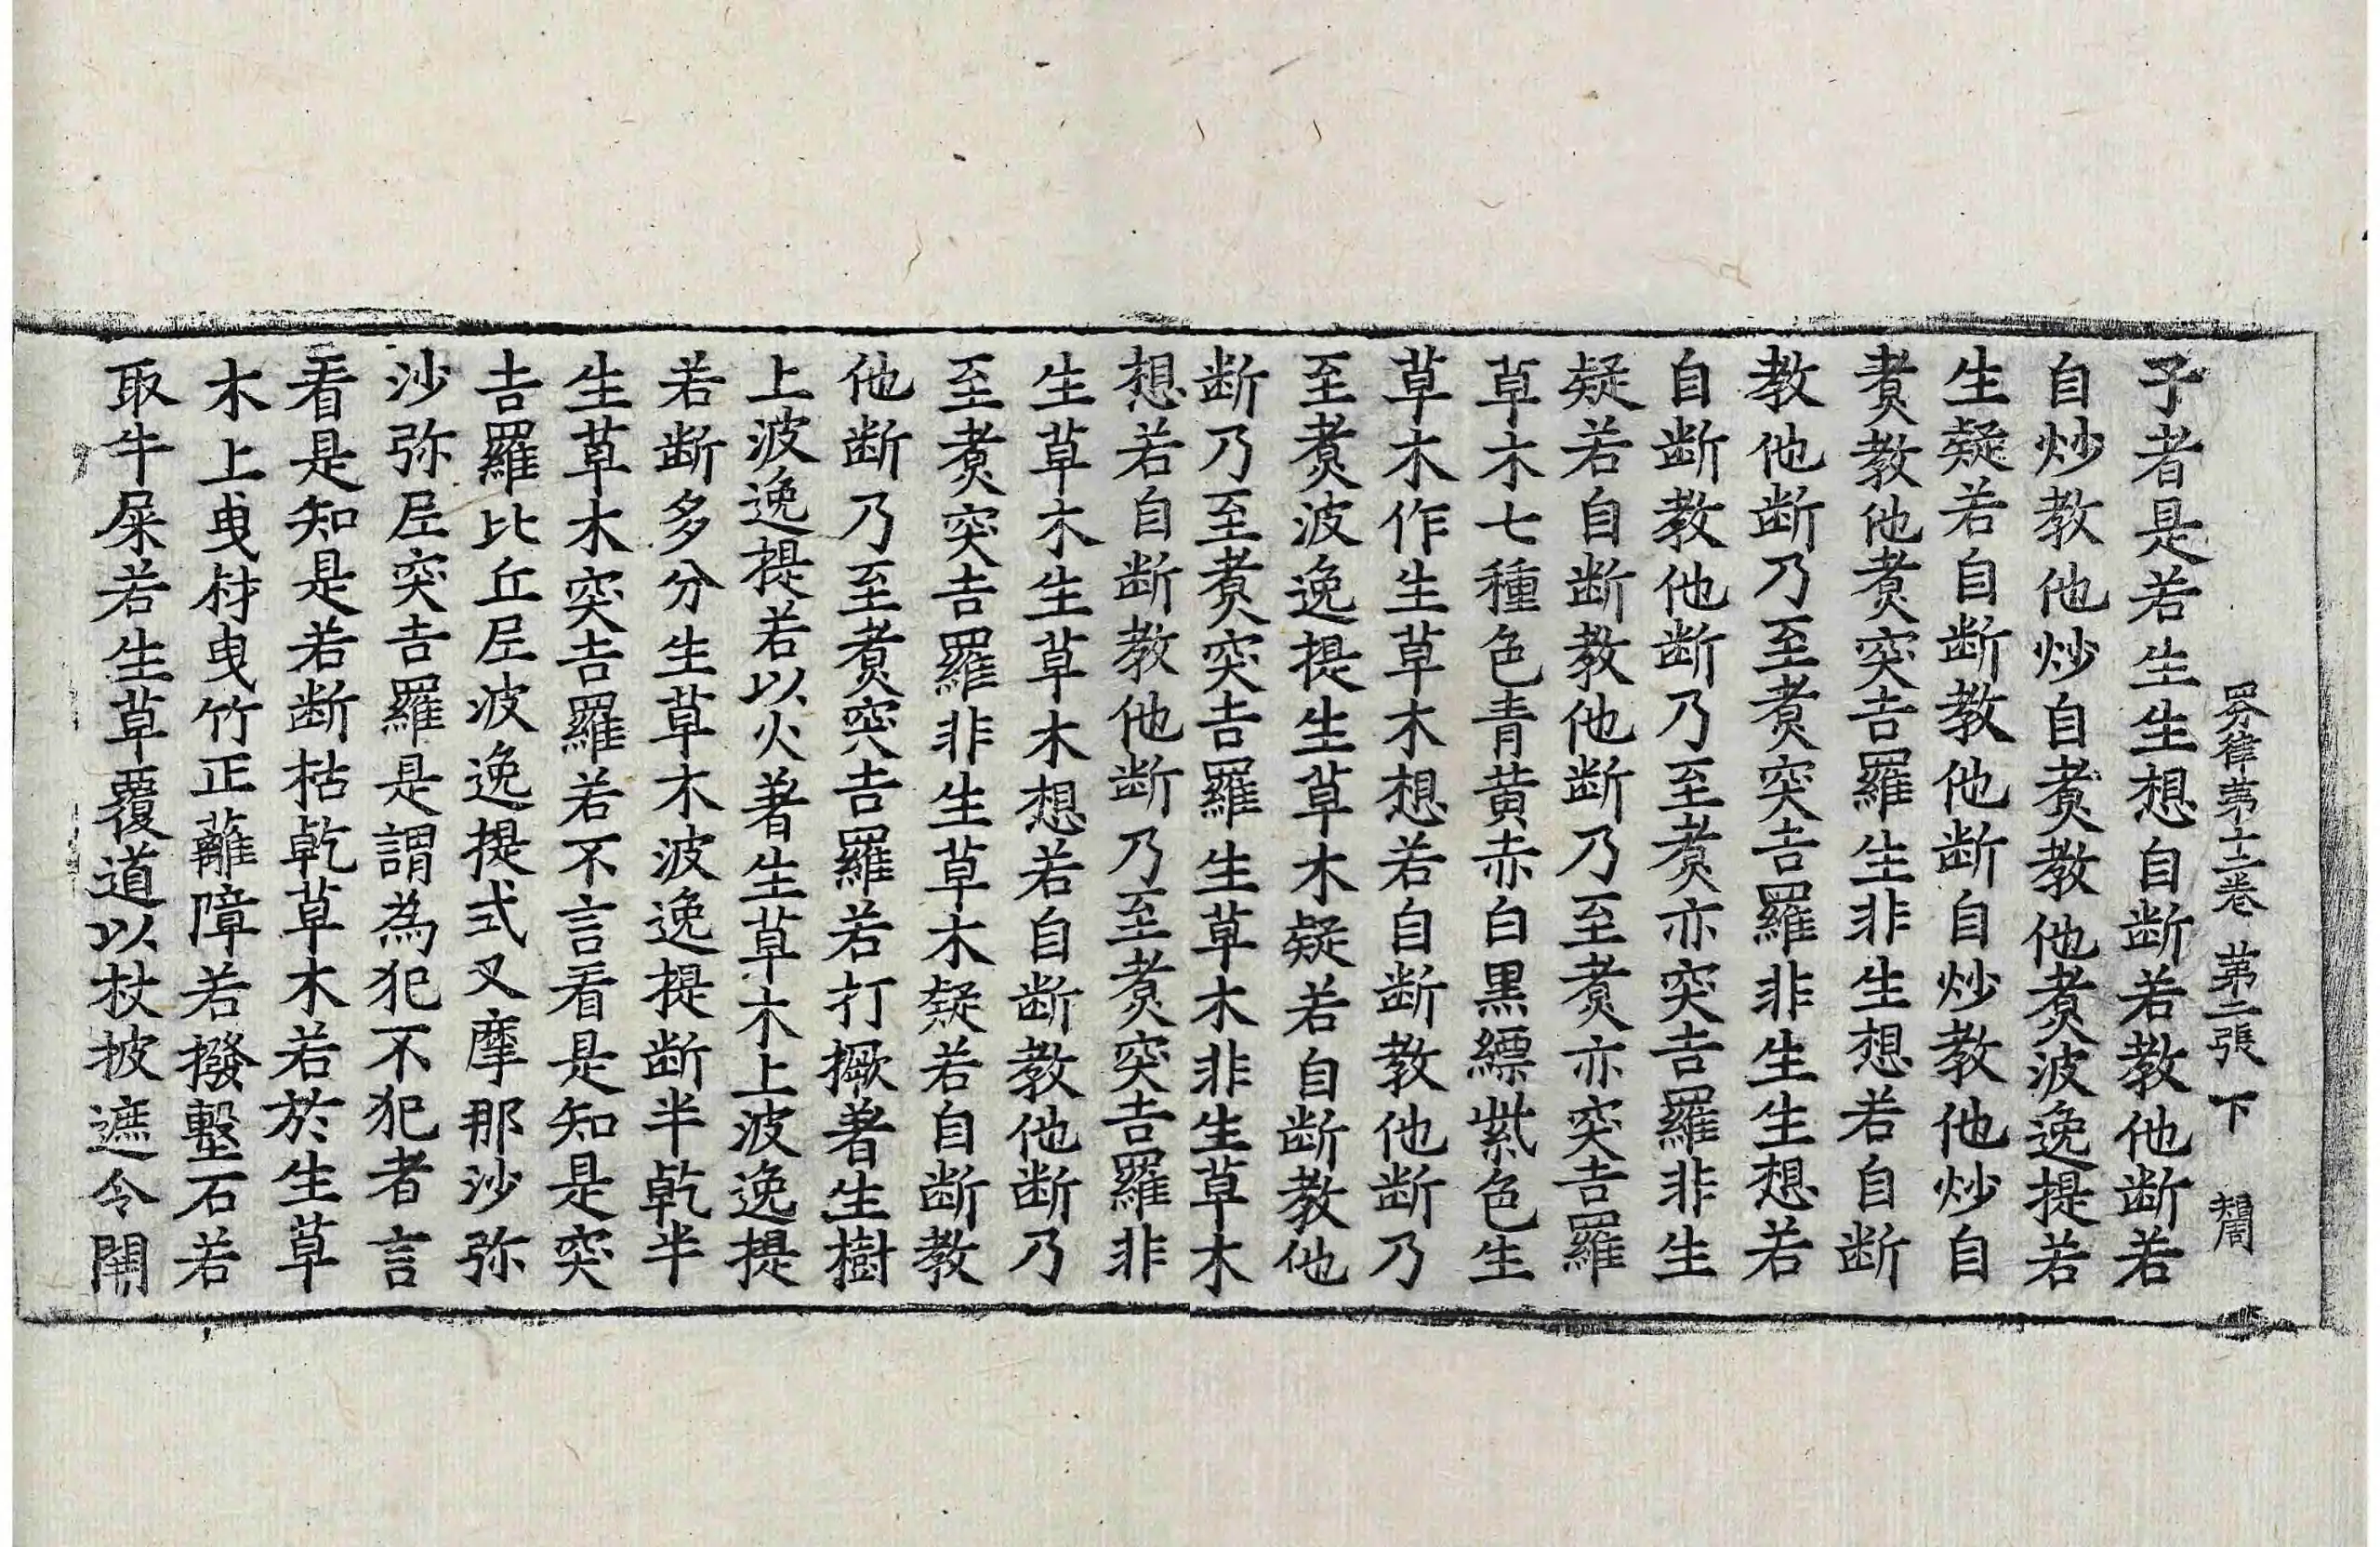 四分律第十二卷 第二張 下 㓮
子者是若生生想自断若教他断若
自炒教他炒自煑教他煑波逸提若
生疑若自断教他断自炒教他炒自
煑教他煑突吉羅生非生想若自断
教他断乃至煑突吉羅非生生想若
自断教他断乃至煑亦突吉羅非生
疑若自断教他断乃至煑亦突吉羅
草木七種色青黄赤白黒縹紫色生
草木作生草木想若自断教他断乃
至煑波逸提生草木疑若自断教他
断乃至煑突吉羅生草木非生草木
想若自断教他断乃至煑突吉羅非
生草木生草木想若自断教他断乃
至煑突吉羅非生草木疑若自断教
他断乃至煑突吉羅若打撅著生樹
上波逸提若以火著生草木上波逸提
若断多分生草木波逸提断半乾半
生草木突吉羅若不言看是知是突
吉羅比丘尼波逸提式叉摩那沙弥
沙弥尼突吉羅是謂為犯不犯者言
看是知是若断枯乾草木若於生草
木上曳材曳竹正蘺障若撥墼石若
取牛屎若生草覆道以杖披遮令開